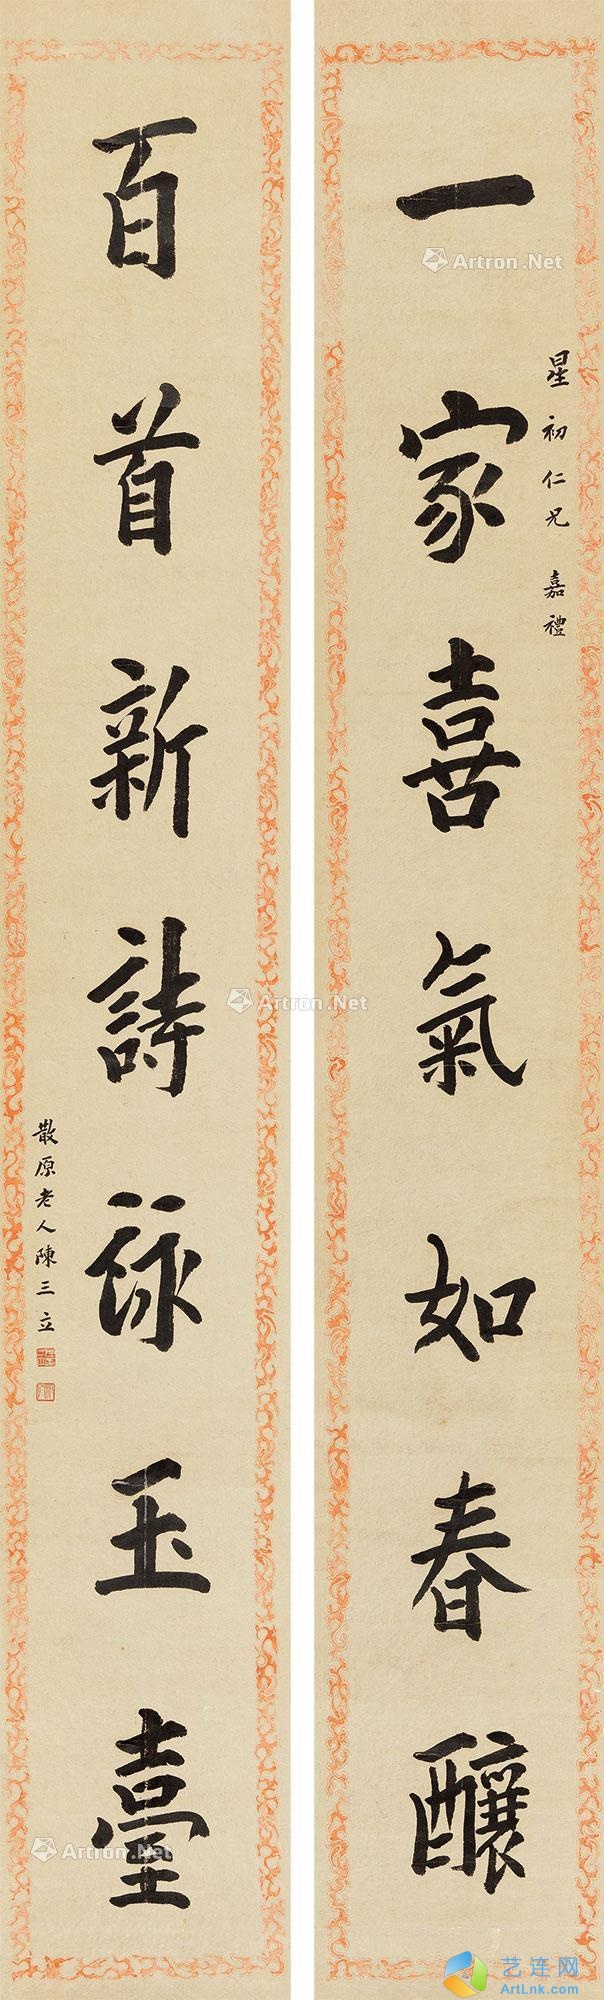 一家喜氣如春釀
星初仁兄 嘉禮
百首新詩詠玉臺
散原老人陳三立
Artron.Net
Artron.Net
Artron.Net
Artron.Net
艺连网
ArtLnk.com